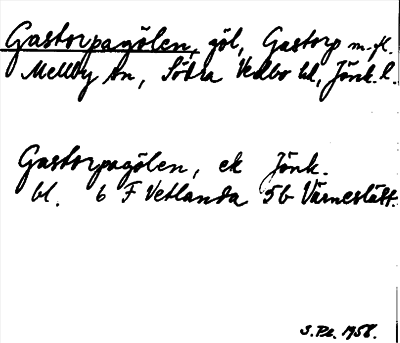 Gastorpagölen, göl, Gastorp m. fl.
Mellby sn, Södra Vedbo hd, Jönk. l.
Gastorpagölen, ek Jönk.
bl. 6 F Vetlanda 5b Värneslätt.
S.Pl. 1958.